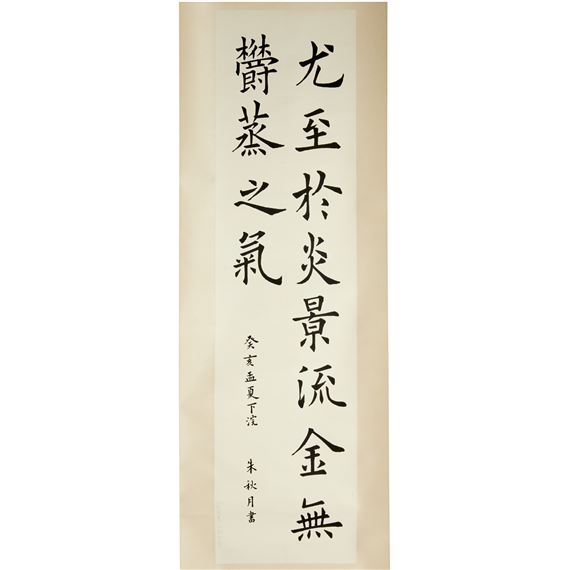 尤至於炎景流金無
欝蒸之氣
癸亥孟夏下浣 朱秋月書